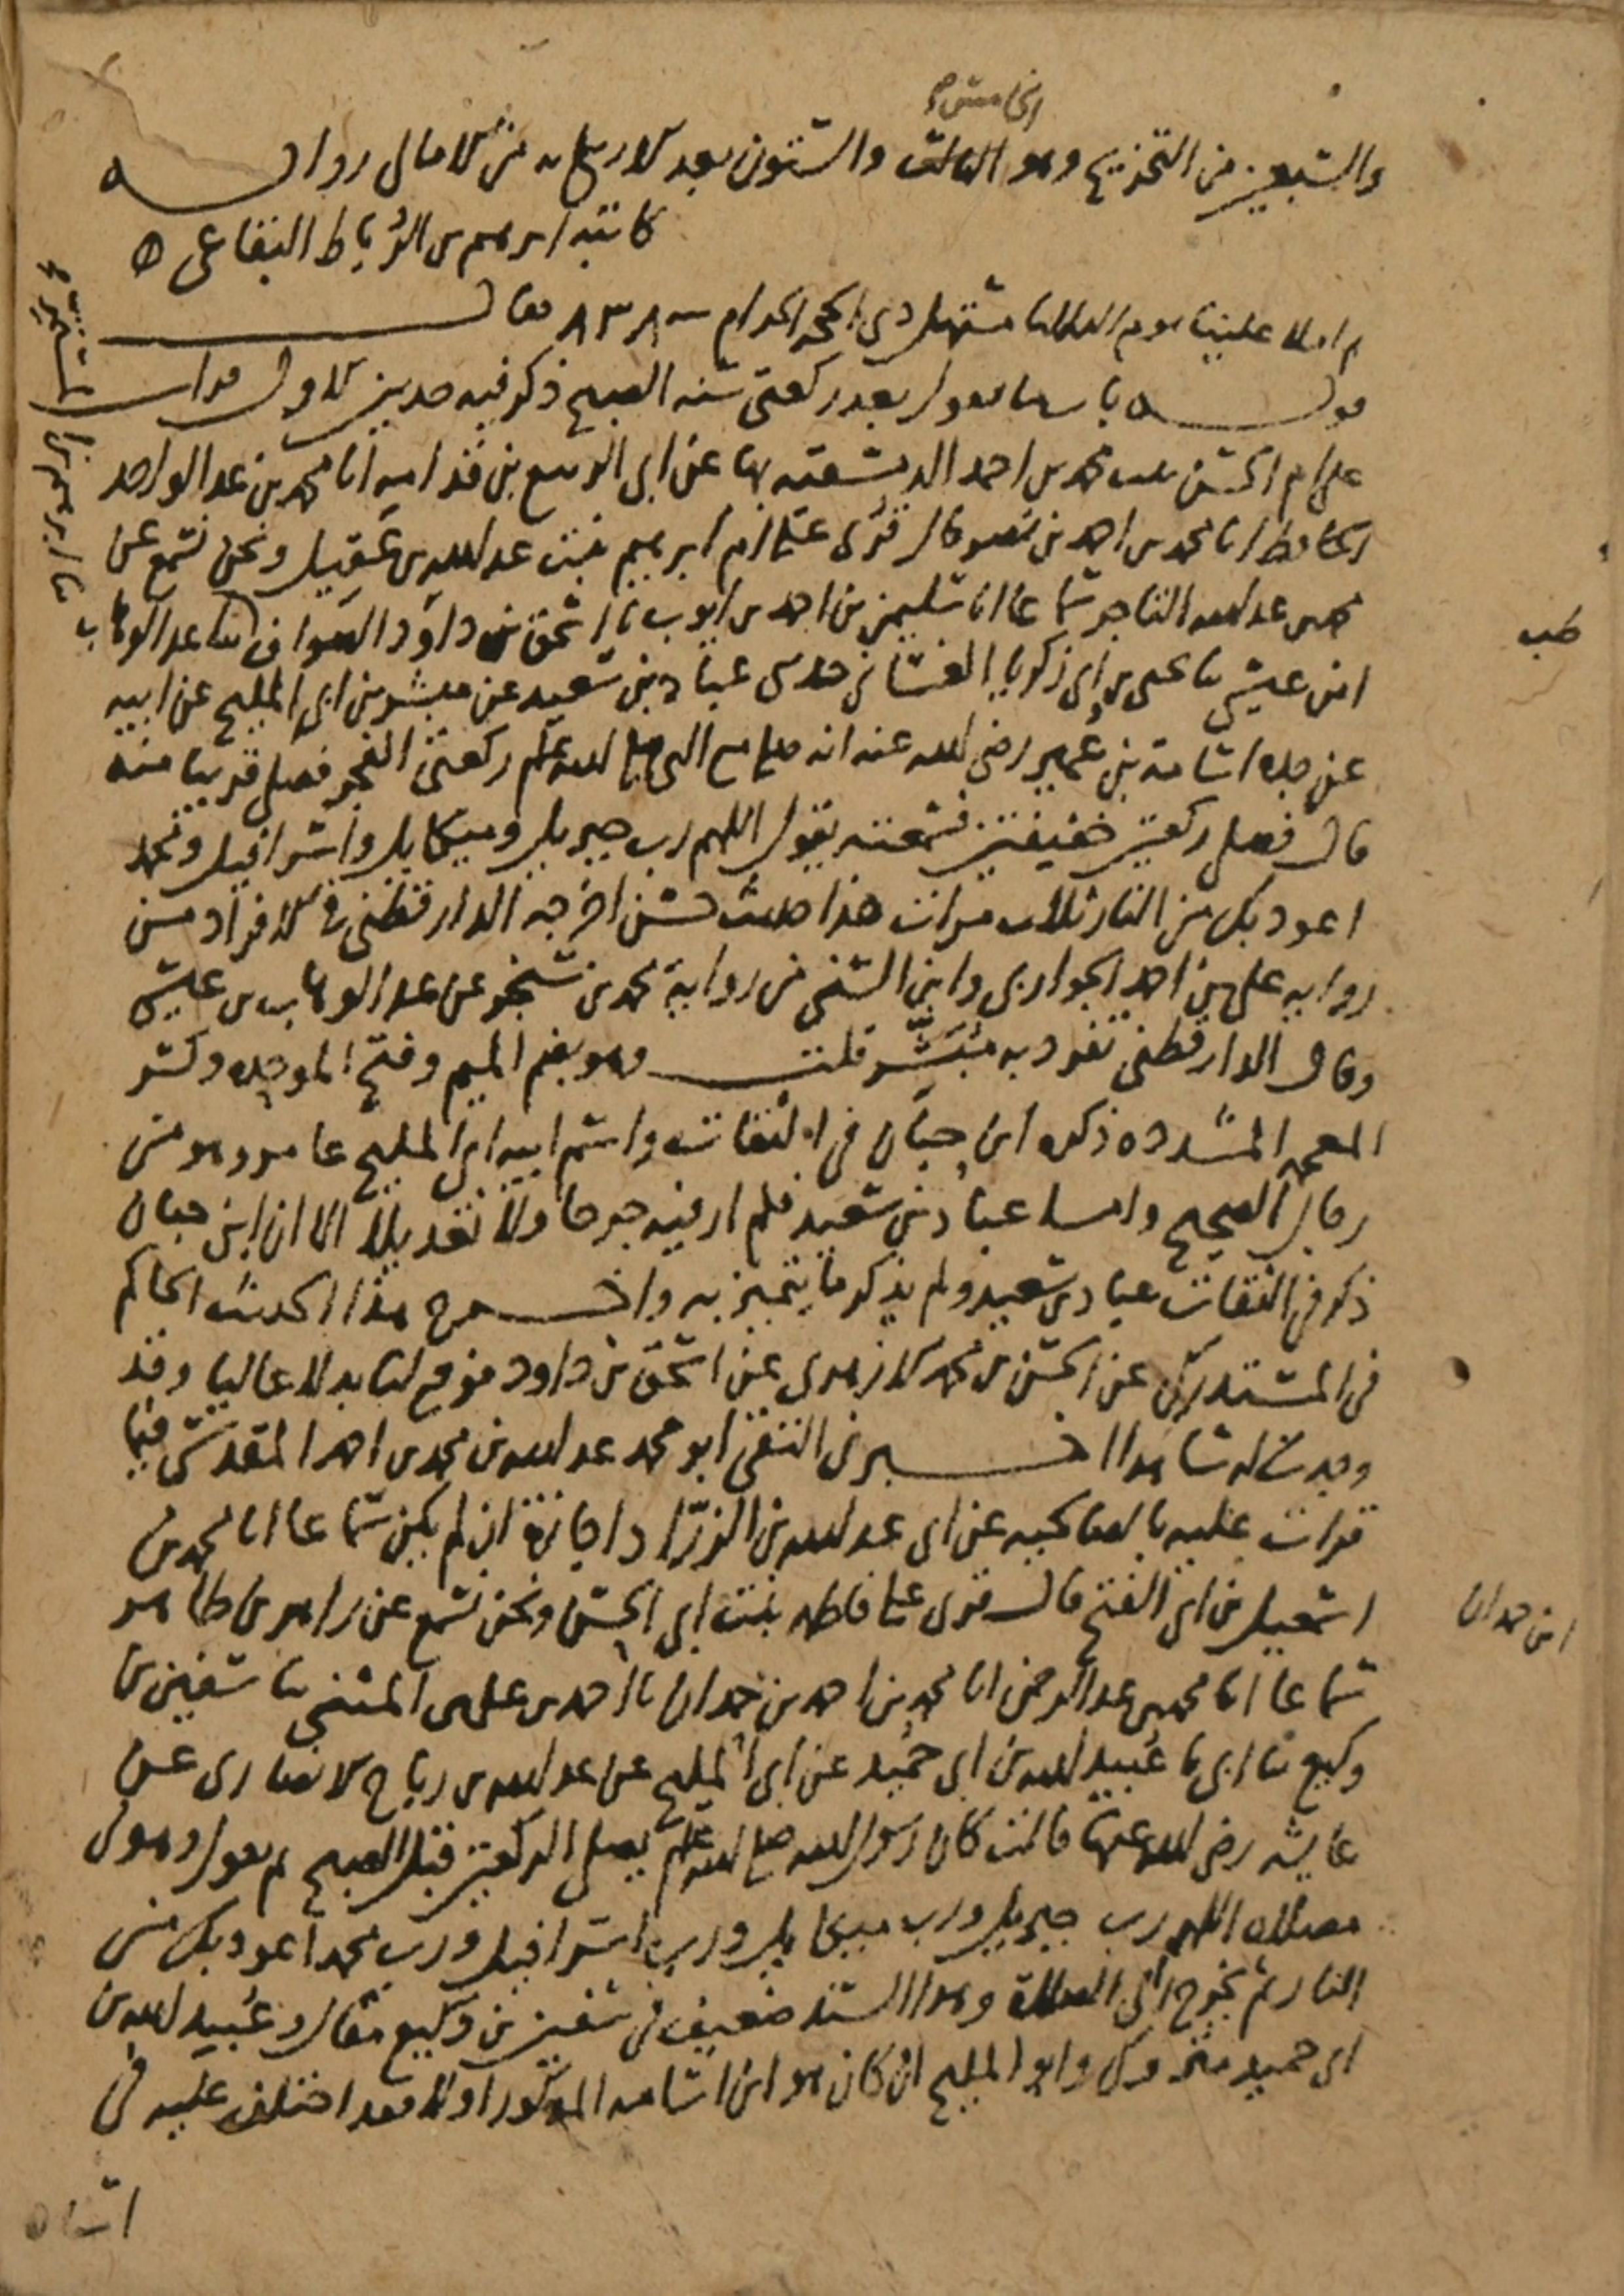 الخامس
والسبعين من التخريج وهو الثالث والستون بعد الاربعمايه من الامالي رواية
كاتبه ابرهيم بن الرُباط البقاعي ه
ثم املا علينا يوم الثلاثا مستهل ذي الحجه الحرام سنه ٨٣٨ فقال
قوله باب ما يقول بعد ركعتي سنه الصبح ذكر فيه حديثين الاول قرات
على ام الحسن بنت محمد بن احمد الدمشقيه بها عن ابي الربيع بن قدامه انا محمد بن عبد الواحد
الحافظ انا محمد بن احمد بن نصر قال قرى على ام ابرهيم بنت عبد الله بن عقيل ونحن نسمع عن
محمد بن عبد الله التاجر سماعا انا سليمن بن احمد بن ايوب نا اسحق بن داود الصواف ثنا عبد الوهاب
ابن عيسى نا يحيى بن ابي زكريا الغساني حدثني عباد بن سعيد عن مبشر بن ابي المليح عن ابيه
عن جده اسامة بن عُمير رضي الله عنه انه صلى مع النبي صلى الله عليه وسلم ركعتي الفجر فصلى قريبا منه
قال فصلى ركعتين خفيفتين فسمعته يقول اللهم رب جبريل وميكايل واسرافيل ومحمد
اعوذ بك من النار ثلاث مرات هذا حديث حسن اخرجه الدارقطني في الافراد من
رواية علي بن احمد الجواربي وابن السني من رواية محمد بن سنجر عن عبد الوهاب بن عيسى
وقال الدارقطني تفرد به مُبَشّر قلت وهو بضم الميم وفتح الموحده وكسر
المعجمه المشدده ذكره ابن حبان في الثقات واسم ابيه ابي المليح عامر وهو من
رجال الصحيح واما عباد بن سعيد فلم ار فيه جرحا ولا تعديلا الا ان ابن حبان
ذكر في الثقات عباد بن سعيد ولم يذكر ما يتميز به واخرج هذا الحديث الحاكم
في المستدرك عن الحسن بن محمد الازهري عن اسحق بن داود فوقع لنا بدلا عاليا وقد
وجدت له شاهدا اخبرني التقي ابو محمد عبد الله بن محمد بن احمد المقدسي فيما
قرات عليه بالصالحيه عن ابي عبد الله بن الزرّاد اجازة ان لم يكن سماعا انا محمد بن
اسمعيل بن ابي الفتح قال قرى على فاطمه بنت ابي الحسن ونحن نسمع عن زاهر بن طاهر
سماعا انا محمد بن عبد الرحمن انا محمد بن احمد بن حمدان نا احمد بن علي بن المثنى نا سفين بن
وكيع نا ابي نا عُبيد الله بن ابي حُميد عن ابي المليح عن عبد الله بن رباح الانصاري عن
عايشه رضي الله عنها قالت كان رسول الله صلى الله عليه وسلم يصلي الركعتين قبل الصبح ثم يقول وهو في
مصلاه اللهم رب جبريل ورب ميكايل ورب اسرافيل ورب محمد اعوذ بك من
النار ثم يخرج الى الصلاة وهذا السند ضعيف في سفين بن وكيع مقال وعُبيد الله بن
ابي حميد متروك وابو المليح ان كان هو ابن اسامه المذكور اولا فقد اختلف عليه في
طب
ابن حمدان